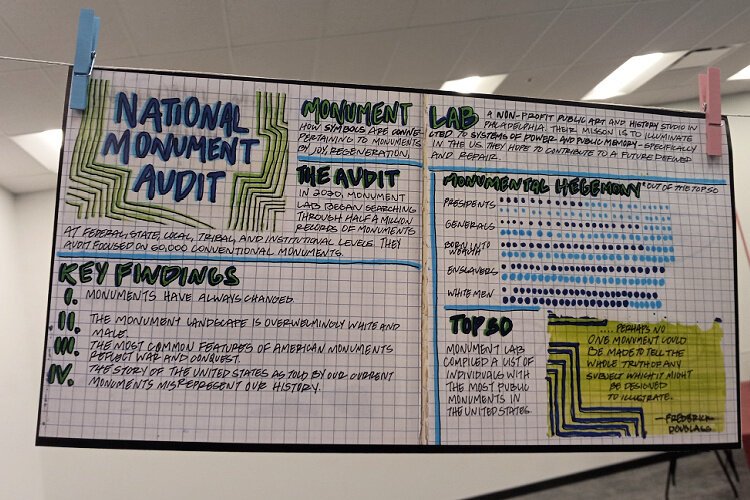 NATIONAL
MONUMENT
AUDIT
MONUMENT LAB
A NON-PROFIT PUBLIC ART AND HISTORY STUDIO IN
PHILADELPHIA. THEIR MISSION IS TO ILLUMINATE
HOW SYMBOLS ARE CONNECTED TO SYSTEMS OF POWER AND PUBLIC MEMORY-SPECIFICALLY
PERTAINING TO MONUMENTS IN THE US. THEY HOPE TO CONTRIBUTE TO A FUTURE DEFINED
BY JOY, REGENERATION, AND REPAIR.
THE AUDIT
IN 2020, MONUMENT
LAB BEGAN SEARCHING
THROUGH HALF A MILLION
RECORDS OF MONUMENTS
AT FEDERAL, STATE, LOCAL, TRIBAL, AND INSTITUTIONAL LEVELS. THEY
AUDIT FOCUSED ON 60,000 CONVENTIONAL MONUMENTS.
KEY FINDINGS
I. MONUMENTS HAVE ALWAYS CHANGED.
II. THE MONUMENT LANDSCAPE IS OVERWELMINGLY WHITE AND
MALE.
III. THE MOST COMMON FEATURES OF AMERICAN MONUMENTS
REFLECT WAR AND CONQUEST.
IV. THE STORY OF THE UNITED STATES AS TOLD BY OUR CURRENT
MONUMENTS MISREPRESENT OUR HISTORY.
MONUMENTAL HEGEMONY *OUT OF THE TOP 50
PRESIDENTS
GENERALS
BORN INTO
WEALTH
ENSLAVERS
WHITE MEN
TOP 50
MONUMENT LAB
COMPILED A LIST OF
INDIVIDUALS WITH
THE MOST PUBLIC
MONUMENTS IN
THE UNITED STATES.
....PERHAPS NO
ONE MONUMENT COULD
BE MADE TO TELL THE
WHOLE TRUTH OF ANY
SUBJECT WHICH IT MIGHT
BE DESIGNED
TO ILLUSTRATE.
—FREDERICK
DOUGLASS